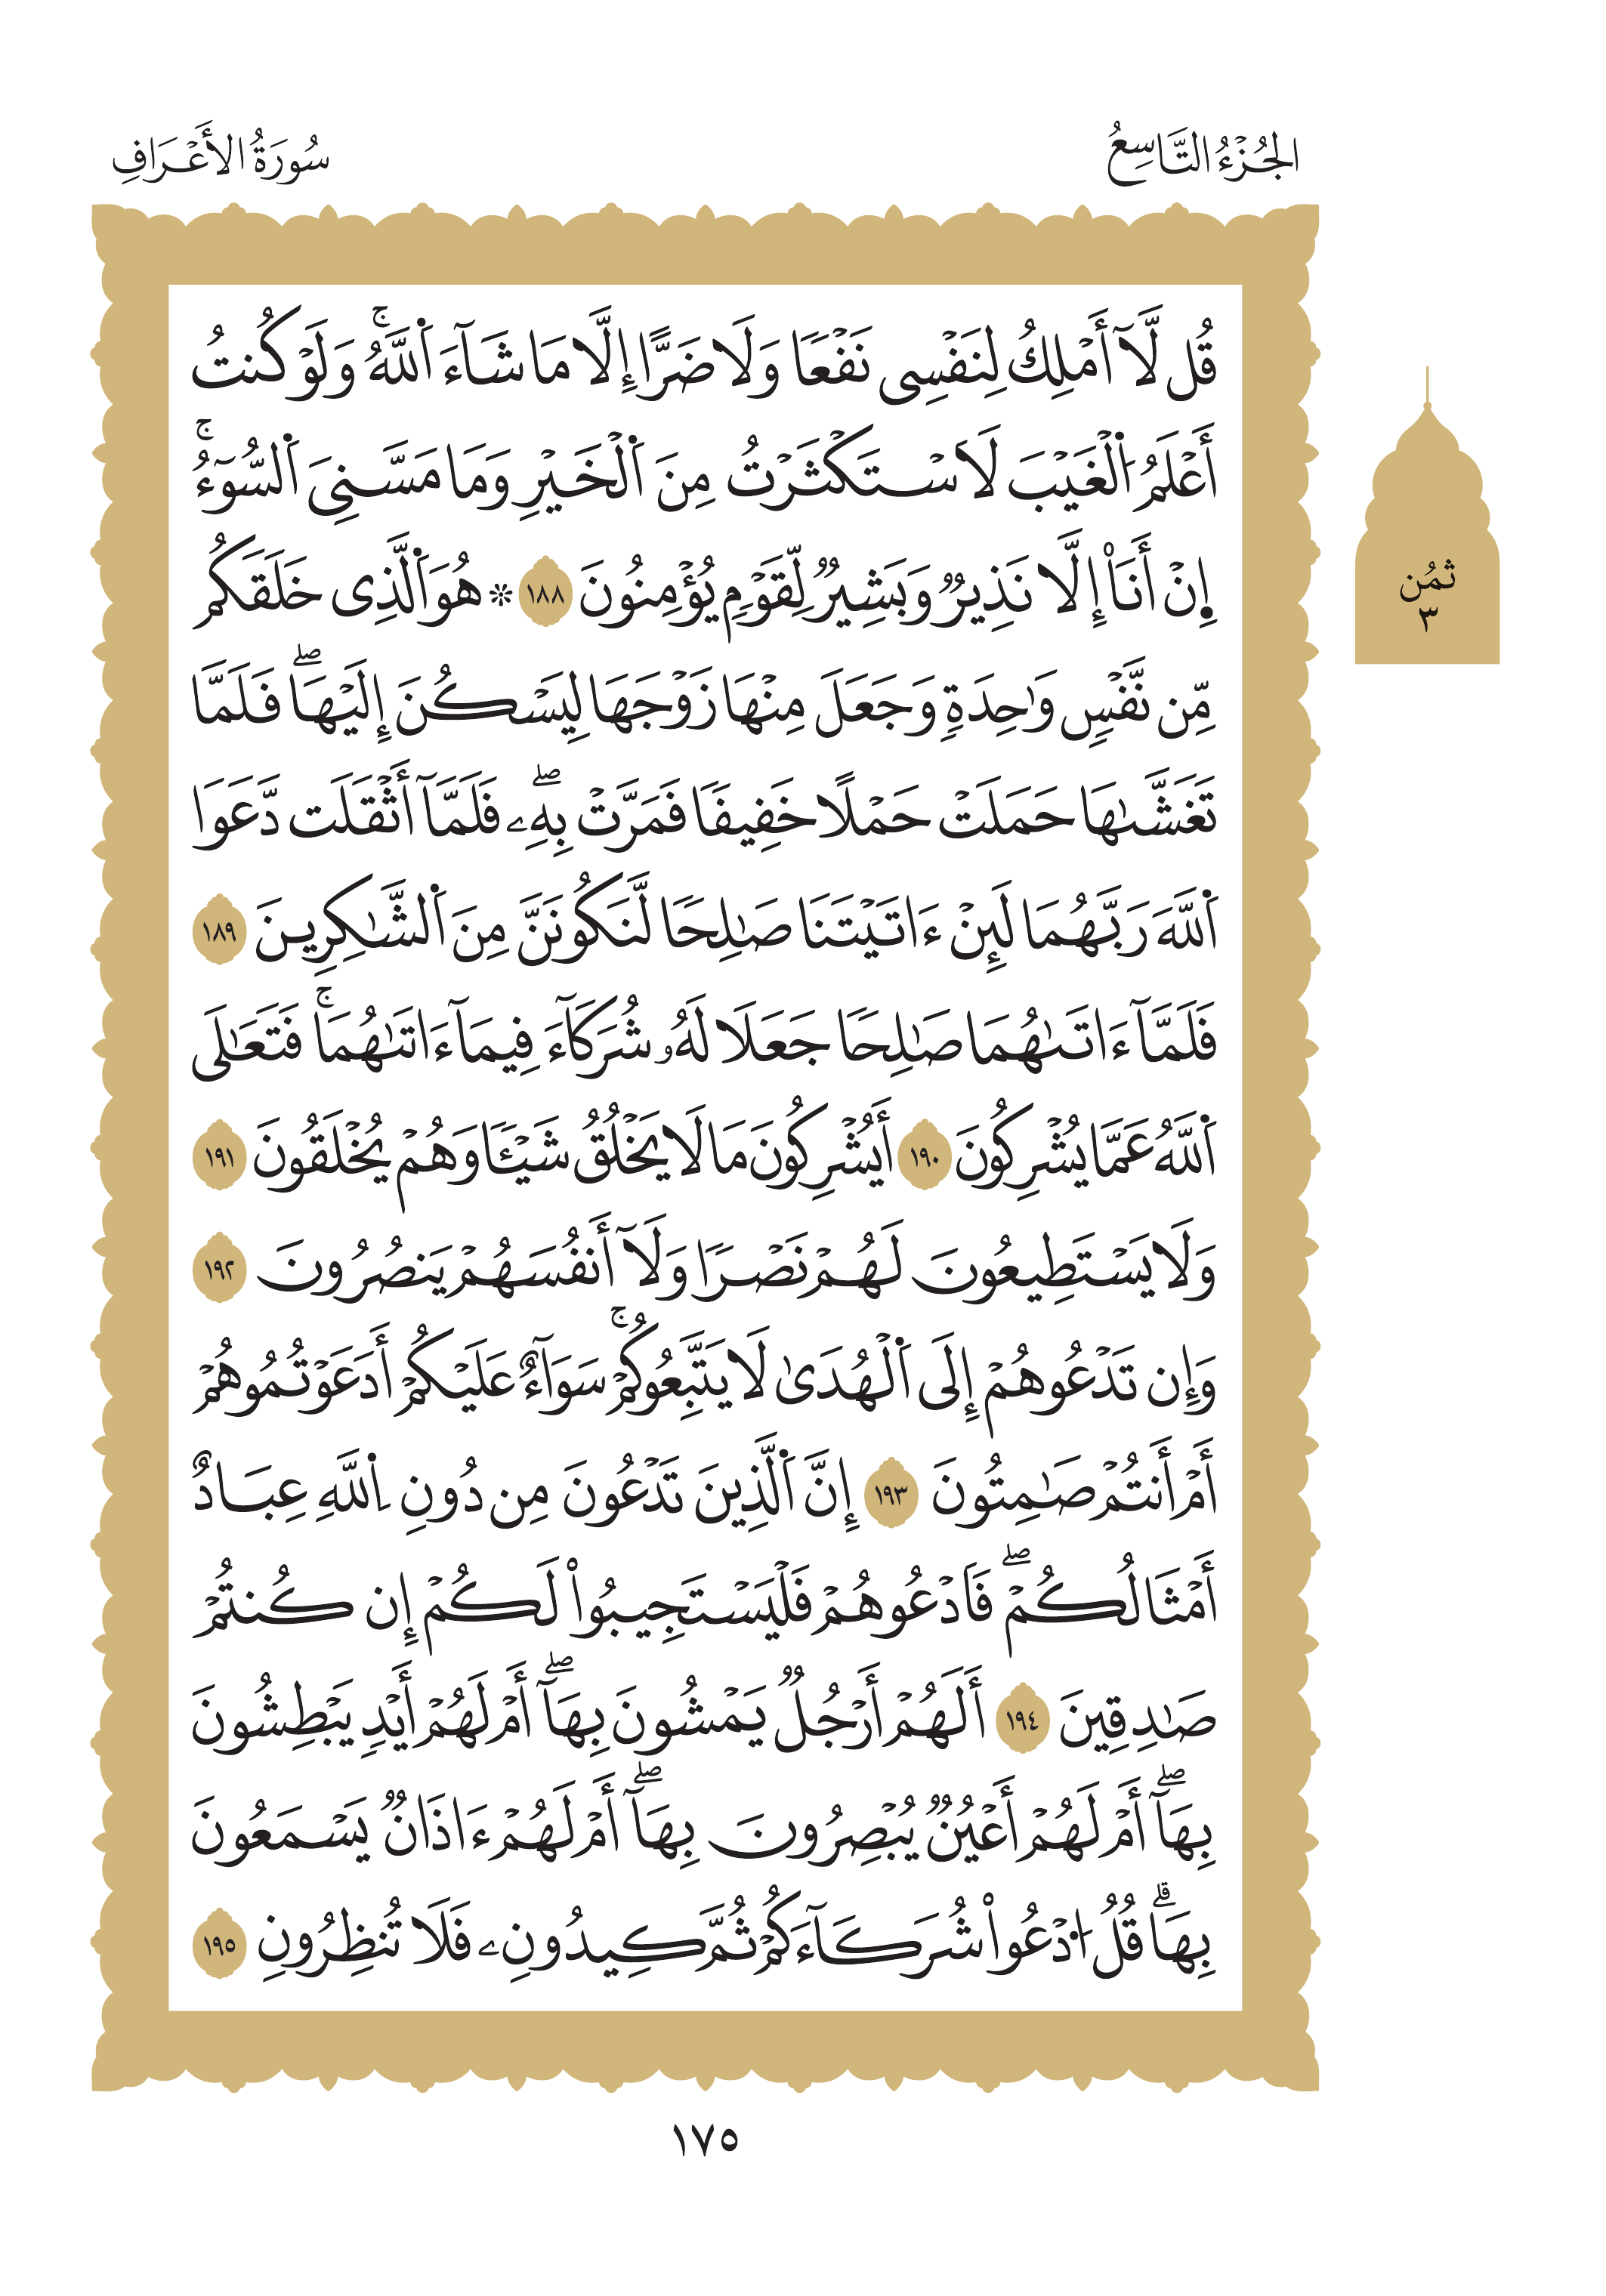 الجُزْءُ التَّاسِعُ
سُورَةُ الأَعْرَافِ
قُل لَّآ أَمْلِكُ لِنَفْسِى نَفْعًا وَلَا ضَرًّا إِلَّا مَا شَآءَ اَ۬للَّهُۚ وَلَوْ كُنتُ
أَعْلَمُ اُ۬لْغَيْبَ لَاَسْتَكْثَرْتُ مِنَ اَ۬لْخَيْرِ وَمَا مَسَّنِىَ اَ۬لسُّوٓءُۚ
اِ۪نْ أَنَا۠ إِلَّا نَذِيرٌ وَبَشِيرٌ لِّقَوْمٍ يُؤْمِنُونَ ١٨٨ ۞ هُوَ اَ۬لَّذِى خَلَقَكُم
مِّن نَّفْسٍ وَٰحِدَةٍ وَجَعَلَ مِنْهَا زَوْجَهَا لِيَسْكُنَ إِلَيْهَاۖ فَلَمَّا
تَغَشَّىٰهَا حَمَلَتْ حَمْلًا خَفِيفًا فَمَرَّتْ بِهِۦۖ فَلَمَّآ أَثْقَلَت دَّعَوَا
اَ۬للَّهَ رَبَّهُمَا لَئِنْ ءَاتَيْتَنَا صَٰلِحًا لَّنَكُونَنَّ مِنَ اَ۬لشَّٰكِرِينَ ١٨٩
فَلَمَّآ ءَاتَىٰهُمَا صَٰلِحًا جَعَلَا لَهُۥ شُرَكَآءَ فِيمَآ ءَاتَىٰهُمَاۚ فَتَعَٰلَى
اَ۬للَّهُ عَمَّا يُشْرِكُونَ ١٩٠ أَيُشْرِكُونَ مَا لَا يَخْلُقُ شَيْـًٔا وَهُمْ يُخْلَقُونَ ١٩١
وَلَا يَسْتَطِيعُونَ لَهُمْ نَصْرًا وَلَآ أَنفُسَهُمْ يَنصُرُونَ ١٩٢
وَإِن تَدْعُوهُمْ إِلَى اَ۬لْهُدَىٰ لَا يَتَّبِعُوكُمْۚ سَوَآءٌ عَلَيْكُمْ أَدَعَوْتُمُوهُمْ
أَمْ أَنتُمْ صَٰمِتُونَ ١٩٣ إِنَّ اَ۬لَّذِينَ تَدْعُونَ مِن دُونِ اِ۬للَّهِ عِبَادٌ
أَمْثَالُكُمْۖ فَادْعُوهُمْ فَلْيَسْتَجِيبُوا۟ لَكُمْ إِن كُنتُمْ
صَٰدِقِينَ ١٩٤ أَلَهُمْ أَرْجُلٌ يَمْشُونَ بِهَآۖ أَمْ لَهُمْ أَيْدٍ يَبْطِشُونَ
بِهَآۖ أَمْ لَهُمْ أَعْيُنٌ يُبْصِرُونَ بِهَآۖ أَمْ لَهُمْ ءَاذَانٌ يَسْمَعُونَ
بِهَاۗ قُلُ اُ۟دْعُوا۟ شُرَكَآءَكُمْ ثُمَّ كِيدُونِۦ فَلَا تُنظِرُونِ ١٩٥
ثمُن
٣
١٧٥